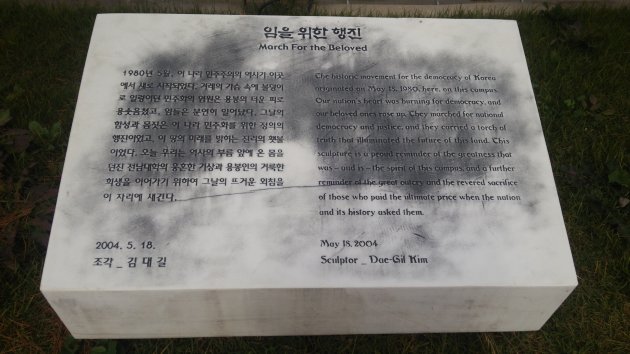 임을 위한 행진
March For the Beloved
1980년 5월, 이 나라 민주주의의 역사가 이곳
에서 새로 시작되었다. 겨레의 가슴 속에 불덩이
로 일렁이던 민주화의 염원은 용봉의 더운 피로
용솟음쳤고, 임들은 분연히 일어났다. 그날의
함성과 몸짓은 이 나라 민주화를 위한 정의의
행진이었고, 이 땅의 미래를 밝히는 진리의 횃불
이었다. 오늘 우리는 역사의 부름 앞에 온 몸을
던진 전남대학의 웅혼한 기상과 용봉인의 거룩한
희생을 이어가기 위하여 그날의 뜨거운 외침을
이 자리에 새긴다.
The historic movement for the democracy of Korea
originated on May 18, 1980, here, on this campus.
Our nation's heart was burning for democracy, and
our beloved ones rose up. They marched for national
democracy and justice, and they carried a torch of
truth that illuminated the future of this land. This
sculpture is a proud reminder of the greatness that
was - and is - the spirit of this campus, and a further
reminder of the great outcry and the revered sacrifice
of those who paid the ultimate price when the nation
and its history asked them.
2004. 5. 18.
조각 _ 김 대 길
May 18, 2004
Sculptor _ Dae-Gil Kim